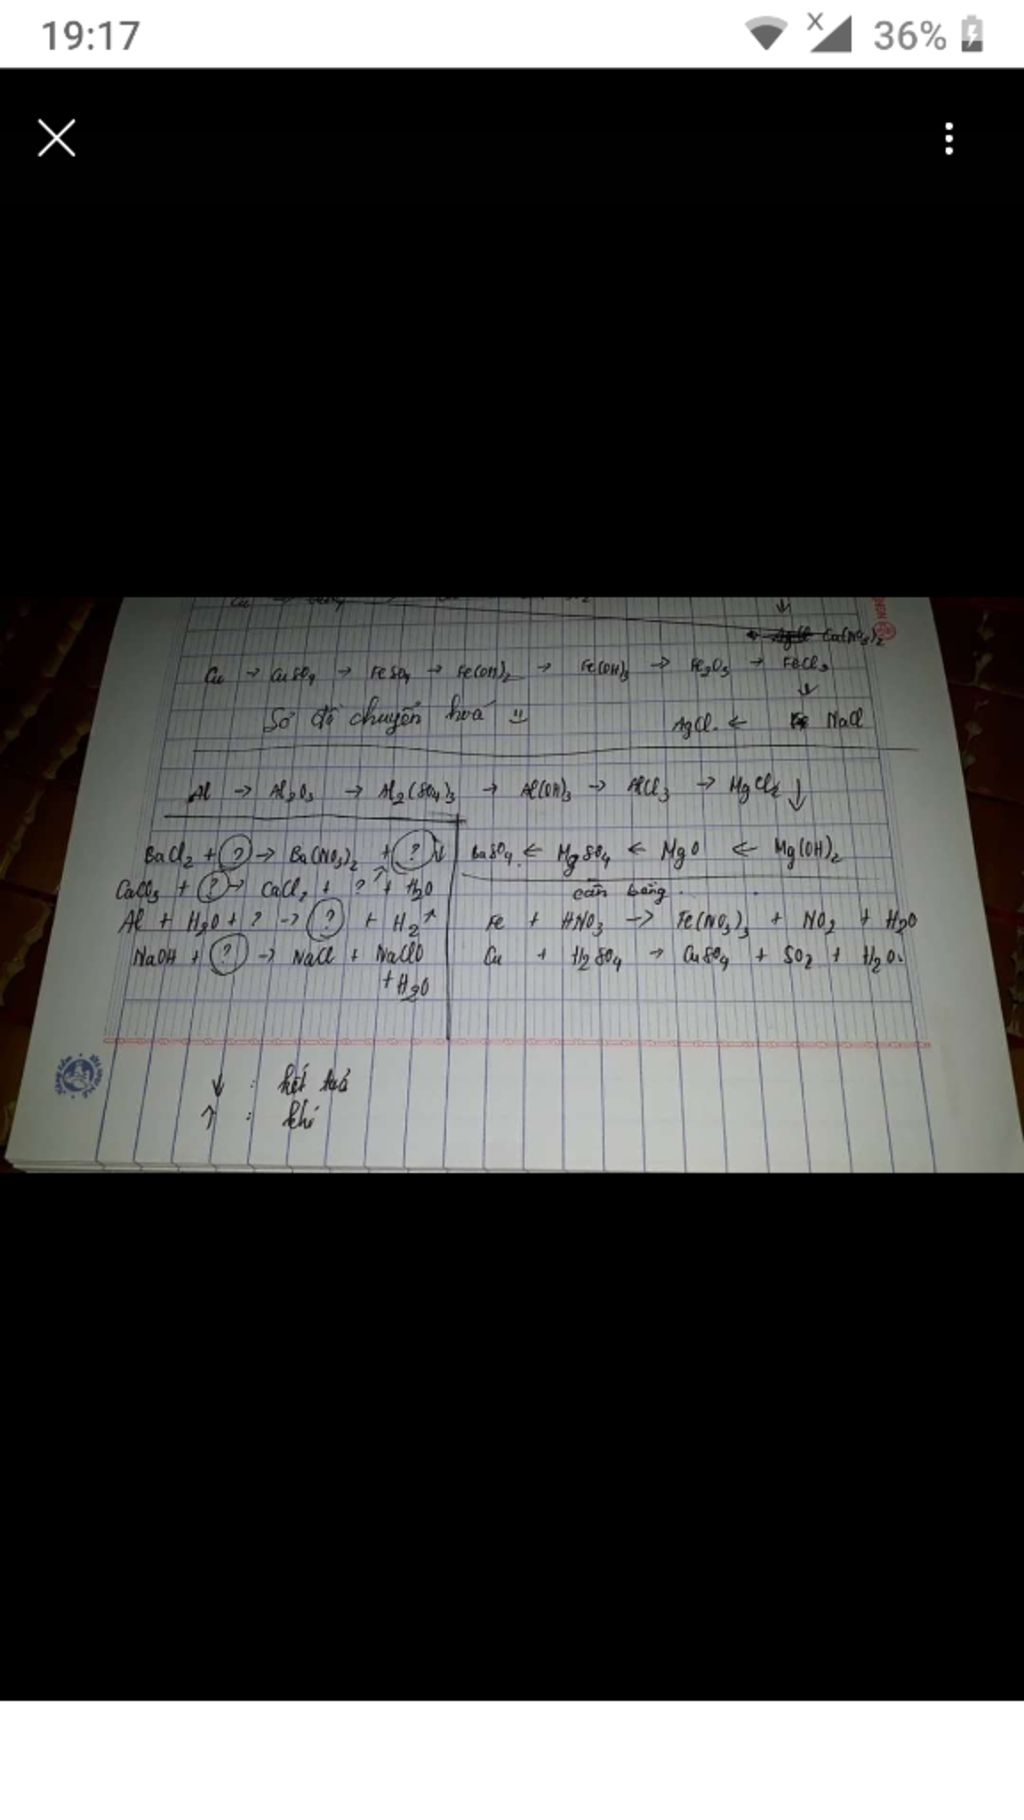 19:17
X
36%
Ca(NO3)2
Cu → CuSO4 → FeSO4 → Fe(OH)2 → Fe(OH)3 → Fe2O3 → FeCl3
↓
Sơ đồ chuyển hoá
AgCl ← NaCl
Al → Al2O3 → Al2(SO4)3 → Al(OH)3 → AlCl3 → MgCl2 ↓
BaSO4 ← MgSO4 ← MgO ← Mg(OH)2
BaCl2 + ? → Ba(NO3)2 + ? ↓
CaCO3 + ? → CaCl2 + ? ↑ + H2O
Al + H2O + ? → ? + H2 ↑
NaOH + ? → NaCl + NaClO
+ H2O
cân bằng
Fe + HNO3 → Fe(NO3)3 + NO2 + H2O
Cu + H2SO4 → CuSO4 + SO2 + H2O.
↓ : kết tuả
↑ : khí